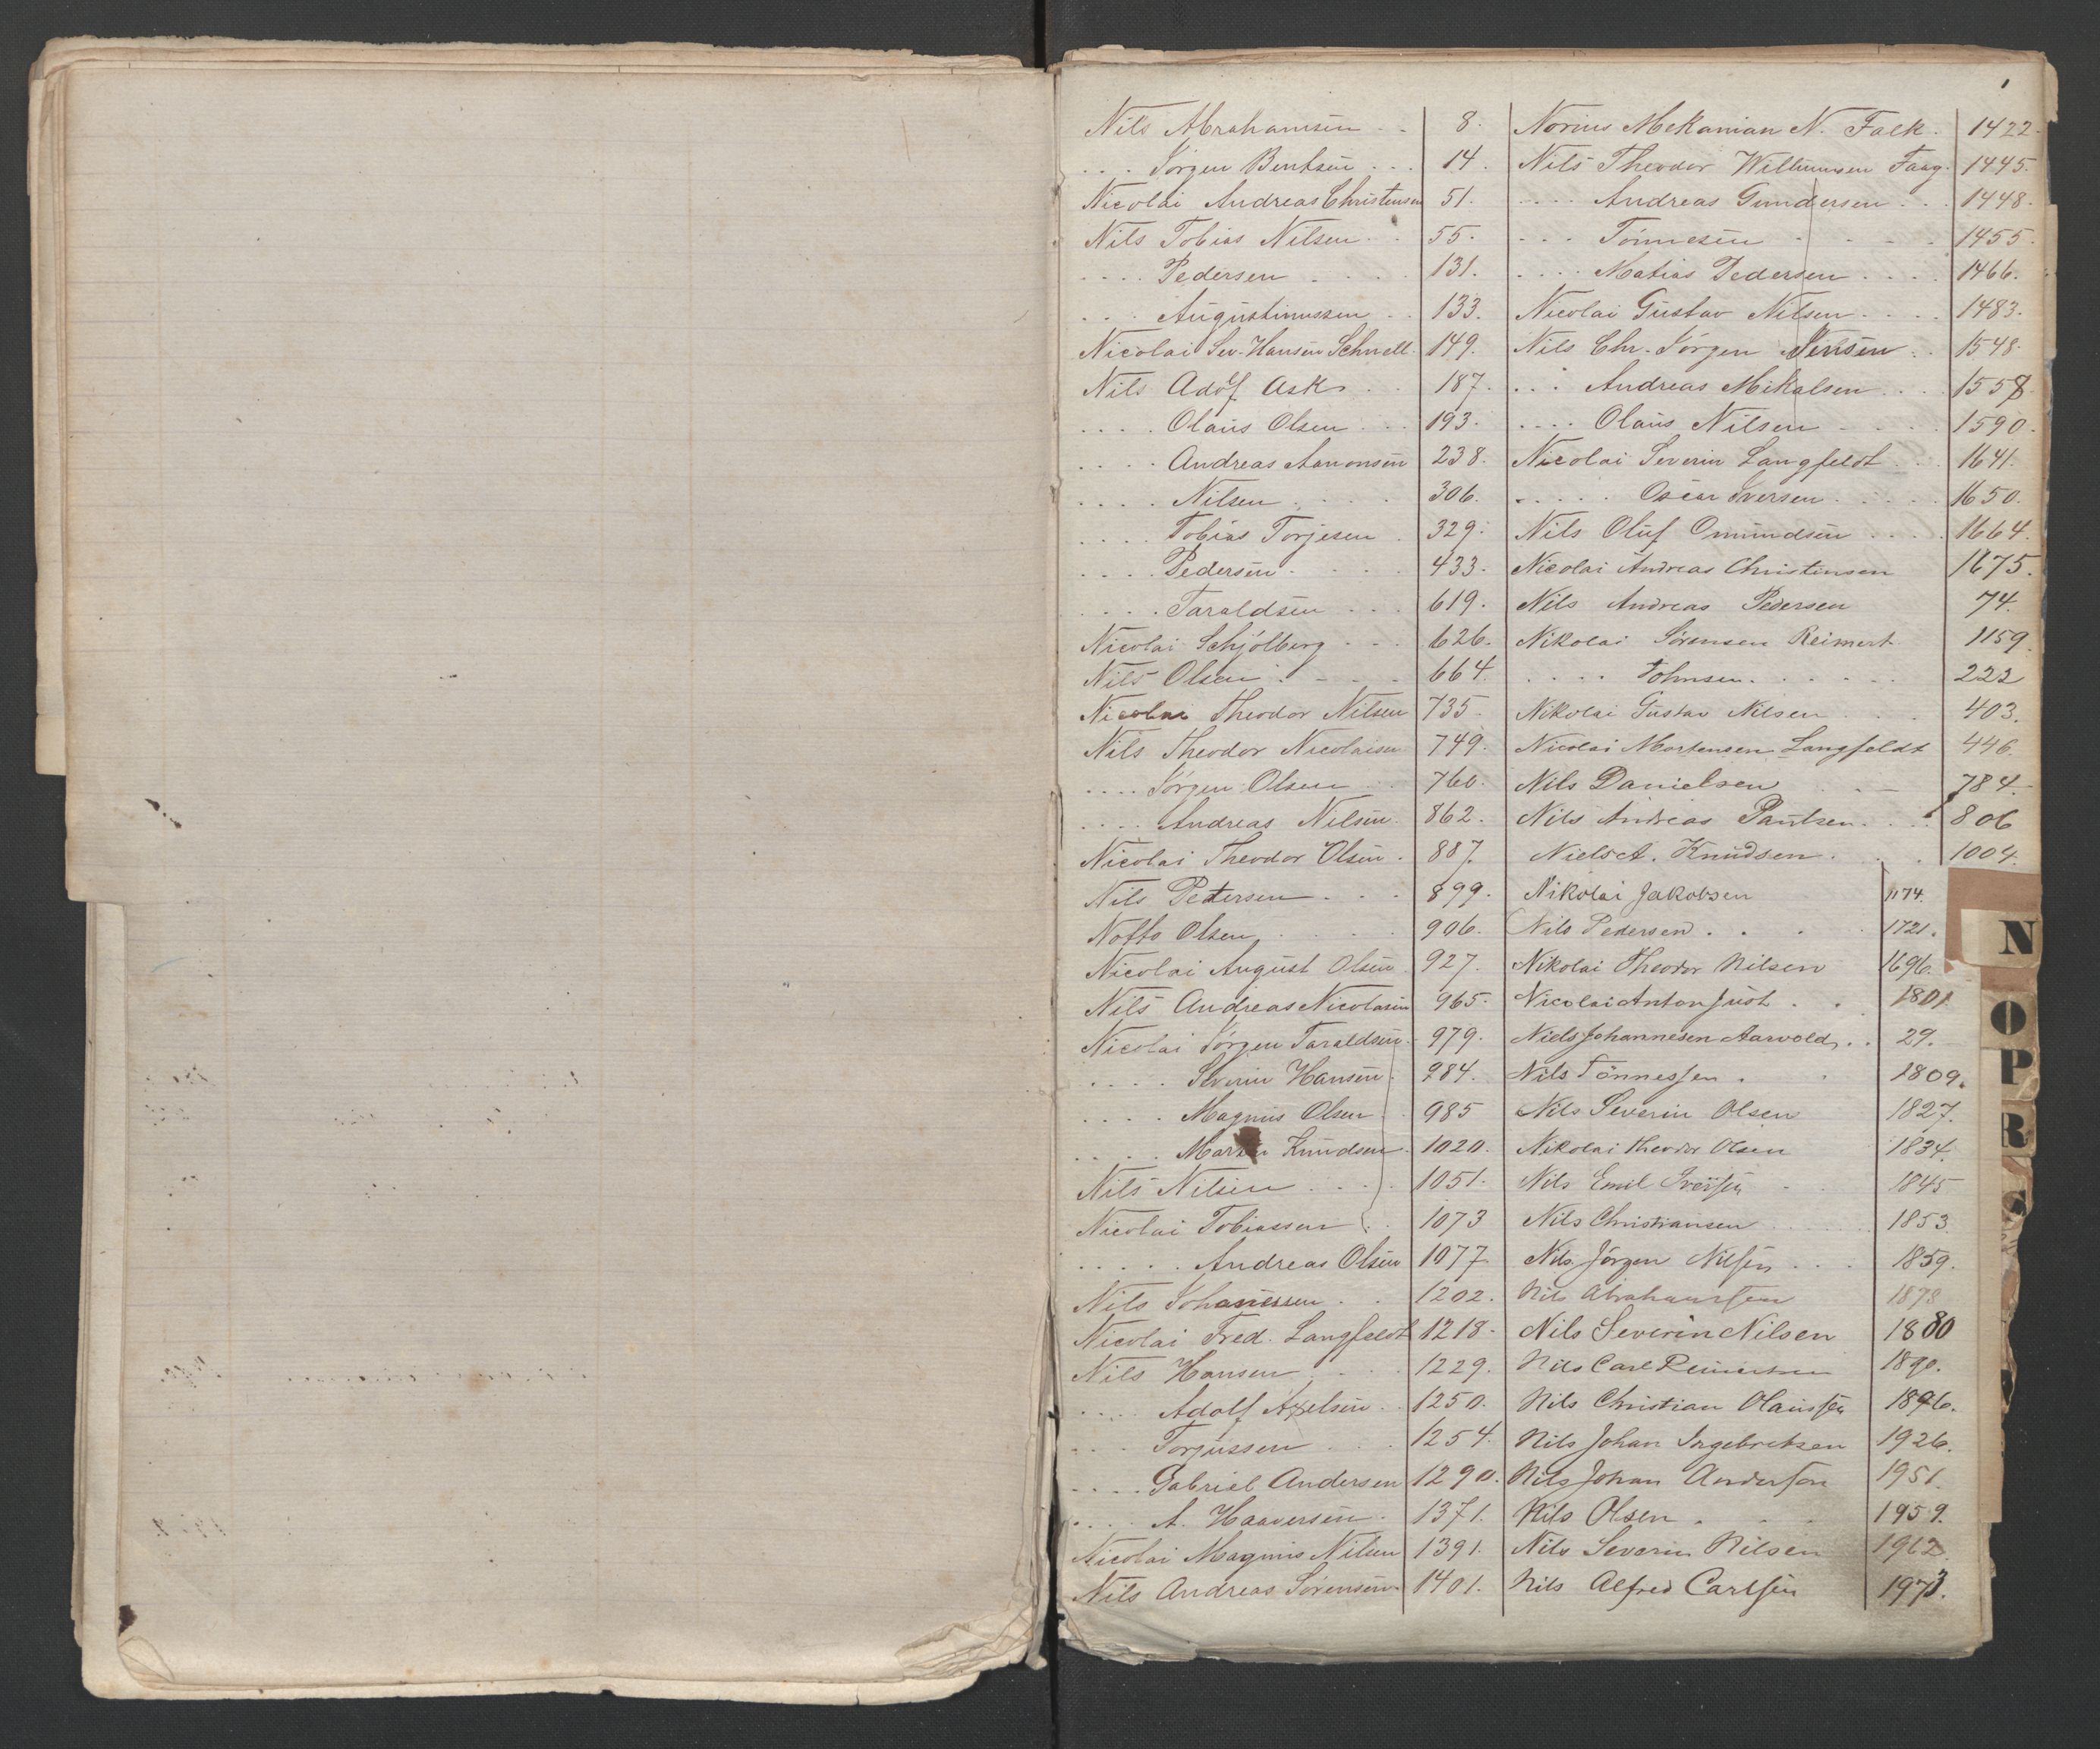 Nils Abrahamsen . . 8.
. . . Jørgen Bentsen . . . 14.
Nicolai Andreas Christensen 51.
Nils Tobias Nilsen . . 55.
. . . . Pedersen . . . . 131.
. . . Augustinussen . . 133.
Nicolai Sev. Hansen Schnell. 149.
Nils Adolf Ask . . 187.
. . . . Olaus Olsen . . . 193.
. . . . Andreas Aanonsen 238.
. . . . Nilsen . . . . 306.
. . . . Tobias Torjesen . 329.
. . . . Pedersen . . . . 433.
. . . . Taraldsen . . . 619.
Nicolai Schjölberg . . . 626.
Nils Olsen . . . . 664.
Nicolai Theodor Nilsen 735.
Nils Theodor Nicolaisen 749.
. . . . Jørgen Olsen . . 760.
. . . . Andreas Nilsen . 862.
Nicolai Theodor Olsen . 887.
Nils Petersen . . . 899.
Notto Olsen . . . . 906.
Nicolai August Olsen . 927.
Nils Andreas Nicolaisen 965.
Nicolai Jørgen Taraldsen . 979.
. . . . Severin Hansen . 984.
. . . . Magnus Olsen . . 985
. . . . Martin Knudsen . 1020.
Nils Nilsen . . . . 1051.
Nicolai Tobiassen . . 1073
. . . . . Andreas Olsen 1077
Nils Johanessen . . 1202.
Nicolai Fred. Langfeldt 1218.
Nils Hansen . . . 1229.
. . . . Adolf Axelsen . . 1250.
. . . Torjussen . . . 1254.
. . . . Gabriel Andersen 1290.
. . . . A. Haaversen . 1371.
Nicolai Magnus Nilsen 1391.
Nils Andreas Sørensen 1401.
Norius Mekanian N. Falk . 1422.
Nils Theodor Willumsen Faag. 1445.
. . . . Andreas Gundersen . . . 1448.
. . . Tönnesen . . . . 1455.
. . . . Matias Pedersen . . . . 1466.
Nicolai Gustav Nilsen . . . . 1483.
Nils Chr. Jørgen Jensen . . 1548.
. . . Andreas Mikalsen . . . . 1558.
. . . . Olaus Nilsen . . . . 1590.
Nicolai Severin Langfeldt . . . 1641.
. . . . . Oscar Iversen . . . . . 1650.
Nils Oluf Omundsen . . . . 1664.
Nicolai Andreas Christensen 1675.
Nils Andreas Pedersen 74.
Nikolai Sørensen Reimert 1159.
. . . . Johnsen . . . . . 222
Nikolai Gustav Nilsen . . . 403.
Nicolai Mortensen Langfeldt 446.
Nils Danielsen . . . 784.
Nils Andreas Pautsen . . . . 806
Niels A. Knudsen . . . 1004.
Nikolai Jakobsen 1174.
Nils Pedersen . . . . 1721.
Nikolai Theodor Nilsen 1696.
Nicolai Anton Just . . 1801.
Niels Johannesen Aarvold . . 29.
Nils Tönnessen . . 1809.
Nils Severin Olsen 1827.
Nikolai Theodor Olsen 1834.
Nils Emil Iverssen . . 1845
Nils Christiansen . . . 1853.
Nils Jörgen Nilsen . . . 1859.
Nils Abrahamssen 1878
Nils Severin Nilsen 1880
Nils Carl 1890.
Nils Christian Olaussen 1896.
Nils Johan Ingebretsen 1926.
Nils Johan Anderson 1951.
Nils Olsen . . . . 1959.
Nils Severin Nilsen 1962.
Nils Alfred Carlsen 1973.
N
O
P
R
S